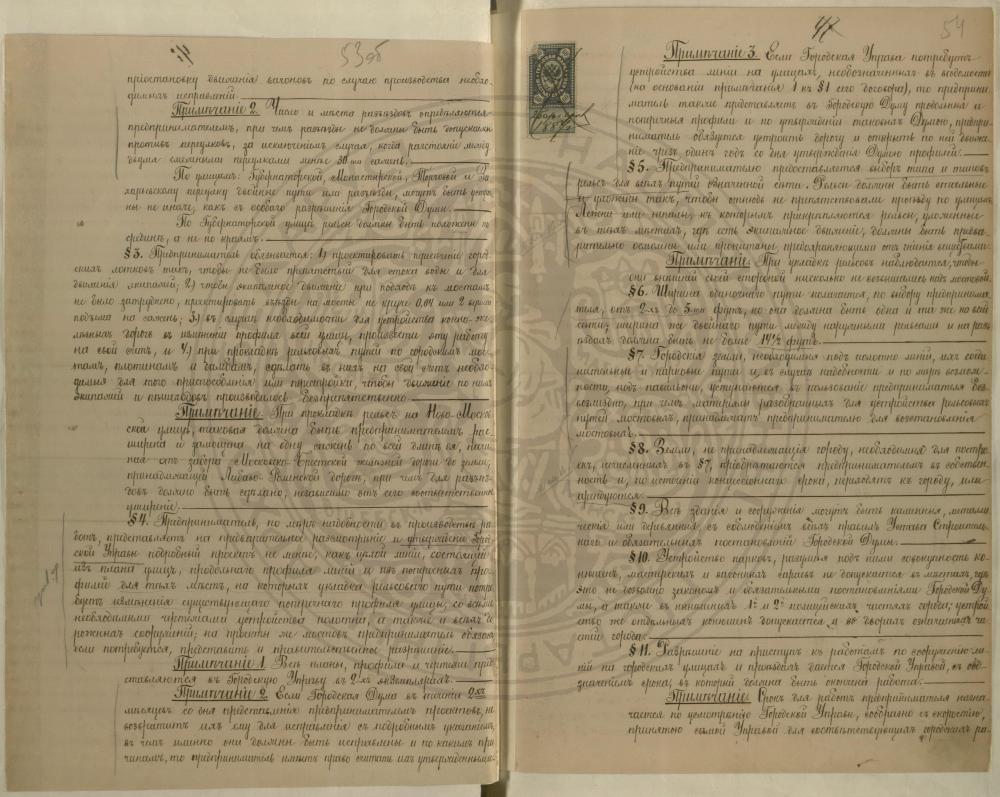 53 об
пріостановку движенія вагоновъ по случаю производства необхо-
димыхъ исправленій.
Примѣчаніе 2. Число и мѣста разъѣздовъ опредѣляются
предпринимателемъ, при чемъ разъѣзды не должны быть допускаемы
противъ переулковъ, за исключеніемъ случая, когда разстояніе между
двумя смежными переулками менѣе 30ти сажень.
По улицамъ: Губернаторской, Монастырской, Торговой и За-
харьевскому переулку двойные пути или разъѣзды, могутъ быть устрое-
ны не иначе, какъ съ особаго разрѣшенія Городской Думы.
По Губернаторской улицѣ рельсы должны быть положены по
срединѣ, а не по краямъ.
§3. Предприниматель обязывается: 1) проектировать пресѣченіе город-
скихъ лотковъ такъ, чтобы не было препятствій для стока воды и для
движенія экипажей; 2) чтобы экипажное движеніе при подъѣздѣ къ мостамъ
не было затруднено, проектировать въѣзды на мосты не круче 0,04 или 2 вершк.
подъема на сажень; 3) въ случаѣ необходимости для устройства конно-же-
лѣзныхъ дорогъ въ измѣненіи профиля всей улицы, произвести эту работу
на свой счетъ, и 4) при прокладкѣ рельсовыхъ путей по городскимъ мос-
тамъ, плотинамъ и дамбамъ, сдѣлать въ нихъ на свой счетъ необхо-
димыя для того приспособленія или перестройки, чтобы движеніе по нимъ
экипажей и пѣшеходовъ производилось безпрепятственно.
Примѣчаніе. При прокладкѣ рельсъ на Ново-Москов-
ской улицѣ, таковая должна быть предпринимателемъ рас-
ширена и замощена на одну сажень по всей длинѣ ея, начи-
ная отъ забора Московско-Брестской желѣзной дороги до земли,
принадлежащей Либаво-Роменской дорогѣ, при чемъ для разъѣз-
довъ должно быть сдѣлано, независимо отъ сего соотвѣтственное
уширеніе.
§4. Предприниматель, по мѣрѣ надобности въ производствѣ ра-
ботъ, представляетъ на предварительное разсмотрѣніе и утвержденіе Город-
ской Управы подробный проектъ не менѣе, какъ цѣлой линіи, состоящій
изъ плана улицъ, продольнаго профиля линій и изъ поперечныхъ про-
филей для тѣхъ мѣстъ, на которыхъ укладка рельсоваго пути потре-
буетъ измѣненія существующаго поперечнаго профиля улицы, со всѣми
необходимыми чертежами устройства полотна, а также и всѣхъ до-
рожныхъ сооруженій; на проекты же мостовъ предприниматель обязанъ,
если потребуется, представить и правительственное разрѣшеніе.
Примѣчаніе 1. Всѣ планы, профили и чертежи пред-
ставляются въ Городскую Управу въ 2-хъ экземплярахъ.
Примѣчаніе 2. Если Городская Дума въ теченіи 2хъ
мѣсяцевъ со дня представленія предпринимателемъ проектовъ, не
возвратитъ ихъ ему для исправленія съ подробнымъ указаніемъ,
въ чемъ именно они должны быть исправлены и по какимъ при-
чинамъ, то предприниматель имѣетъ право считать ихъ утвержденными.
54
Примѣчаніе 3. Если Городская Управа потребуетъ
устройства линіи на улицахъ, необозначенныхъ въ вѣдомости
(на основаніи примѣчанія 1 къ §1 сего договора), то предприни-
матель также представляетъ въ Городскую Думу продольный и
поперечный профили и по утвержденіи таковыхъ Думою, предпри-
ниматель обязуется устроить дорогу и открыть по ней движе-
ніе чрезъ одинъ годъ со дня утвержденія Думою профилей.
§5. Предпринимателю предоставляется выборъ типа и типовъ
рельсъ для всѣхъ путей означенной сѣти. Рельсы должны быть стальные
и уложены такъ, чтобы отнюдь не препятствовали проѣзду по улицамъ.
Лежни или шпалы, къ которымъ прикрѣпляются рельсы, уложенные
въ тѣхъ мѣстахъ, гдѣ есть экипажное движеніе, должны быть предва-
рительно осмолены или пропитаны предохраняющими отъ гніенія веществами.
Примѣчаніе. При укладкѣ рельсовъ наблюдается, чтобы
они внѣшней своей стороной нисколько не возвышались надъ мостовой.
§6. Ширина одиночнаго пути полагается, по выбору предпринима-
теля, отъ 2-хъ до 5-ти футъ, но она должна быть одна и та же на всей
сѣти; ширина же двойнаго пути между наружными рельсами и на разъ-
ѣздахъ должна быть не болѣе 14½ футъ.
§7. Городскія земли, необходимыя подъ полотно линій, ихъ соеди-
нительные и парковые пути и, въ случаѣ надобности и по мѣрѣ возмож-
ности, подъ павильоны, уступаются въ пользованіе предпринимателя без-
возмездно, при чемъ матеріалы разобранныхъ для устройства рельсовыхъ
путей мостовыхъ, принадлежатъ предпринимателю для возстановленія
мостовыхъ.
§8. Земли, не принадлежащія городу, необходимыя для постро-
екъ, исчисленныхъ въ §7, пріобрѣтаются предпринимателемъ въ собствен-
ность и, по истеченіи концессіоннаго срока, переходятъ къ городу, или
арендуются.
§9. Всѣ зданія и сооруженія могутъ быть каменныя, металли-
ческія или деревянныя съ соблюденіемъ всѣхъ правилъ Устава Строитель-
наго и обязательныхъ постановленій Городской Думы.
§10. Устройство парковъ, разумѣя подъ ними совокупность ко-
нюшень, мастерскихъ и вагонныхъ сараевъ не допускается въ мѣстахъ, гдѣ
это не дозволено закономъ и обязательными постановленіями Городской Ду-
мы, а также въ нынѣшнихъ 1й и 2й полицейскихъ частяхъ города; устрой-
ство же отдѣльныхъ конюшень допускается и во дворахъ означенныхъ ча-
стей города.
§11. Разрѣшеніе на приступъ къ работамъ по сооруженію ли-
ній на городскихъ улицахъ и проѣздахъ дается Городской Управой, съ обо-
значеніемъ срока, въ который должна быть окончена работа.
Примѣчаніе. Срокъ для работъ предпринимателя назна-
чается по усмотрѣнію Городской Управы, сообразно съ скоростію,
принятою самой Управой для соотвѣтствующихъ городскихъ ра-